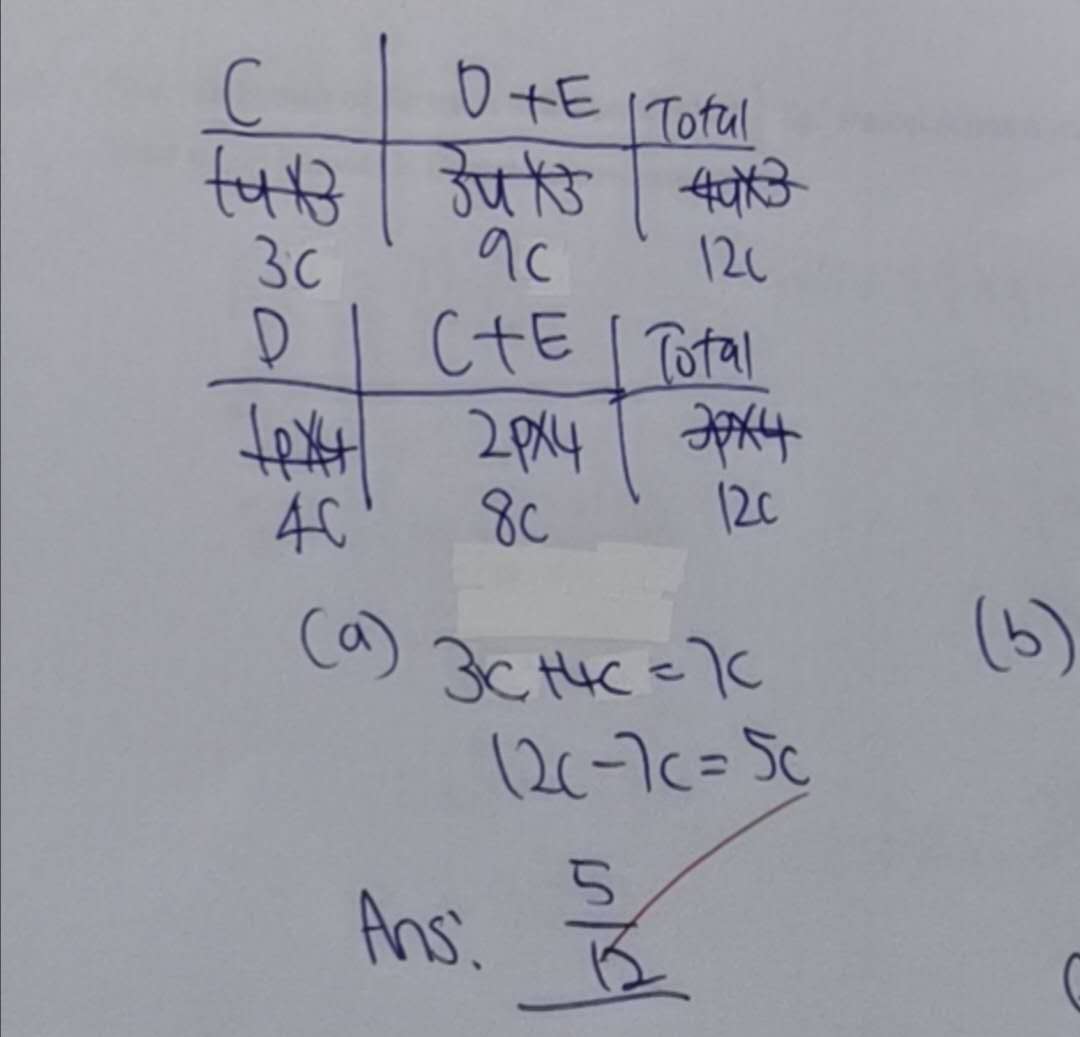 C D+E Total
1u×3 3u×3 4u×3
3c 9c 12c
D C+E Total
1p×4 2p×4 3p×4
4c 8c 12c
(a) 3c+4c=7c (b)
12c-7c=5c
Ans: 5/12